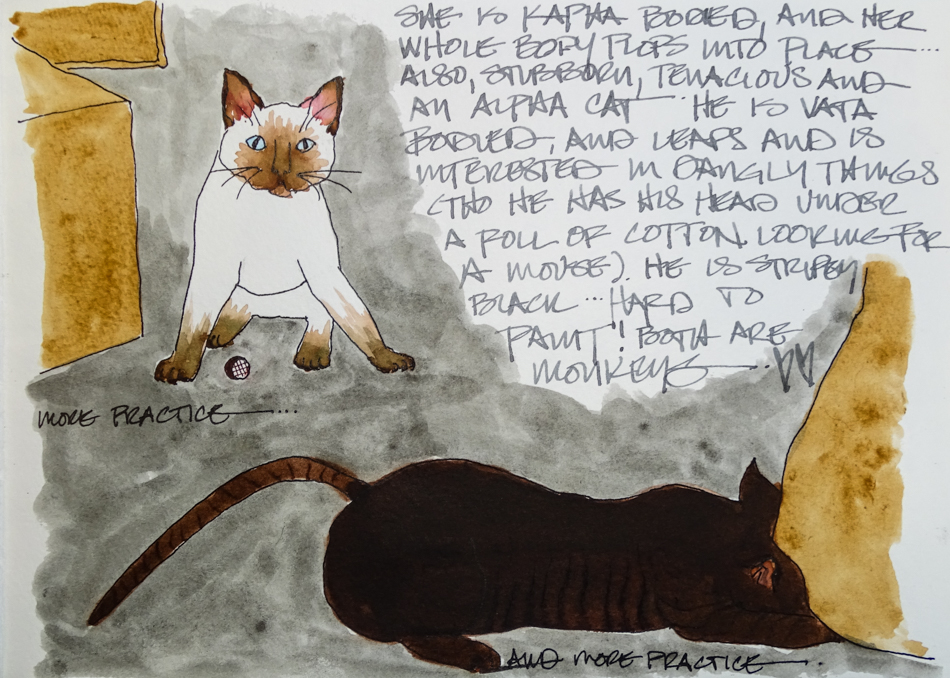 SHE IS KAPHA BODIED, AND HER
WHOLE BODY PLOPS INTO PLACE...
ALSO, STUBBORN, TENACIOUS AND
AN ALPHA CAT HE IS VATA
BODIED, AND LEAPS AND IS
INTERESTED IN DANGLY THINGS
(THO HE HAS HIS HEAD UNDER
A ROLL OF COTTON LOOKING FOR
A MOUSE). HE IS STRIPEY
BLACK... HARD TO
PAINT! BOTH ARE
MONKEYS
MORE PRACTICE...
AND MORE PRACTICE